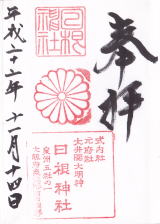 奉拝
日根神社
式内社
元府社
大井関大明神
日根神社
泉州五社の一
平成二十二年 十一月十四日